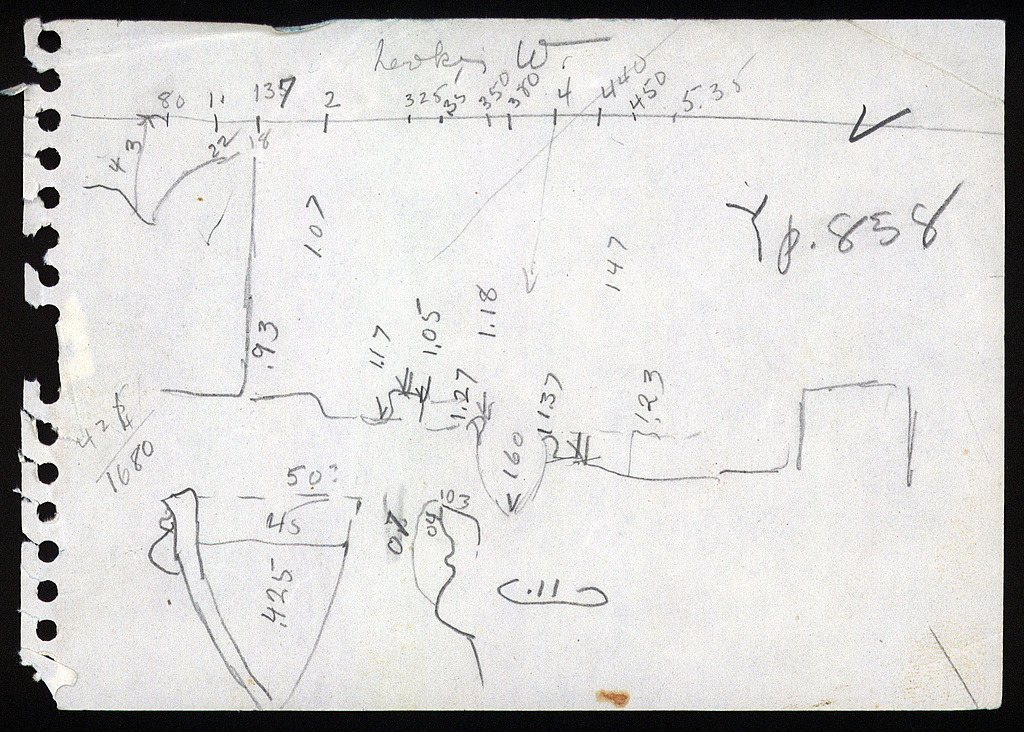 looking W.
80 11 137 2 325 35 350 380 4 440 450 5.35
43 22 18
Y p. 858
1.07 147
.93 1.17 1.05 1.18
1.27 1.37 1.23
160
42
1680
50?
45
.425
07 04 103
.11